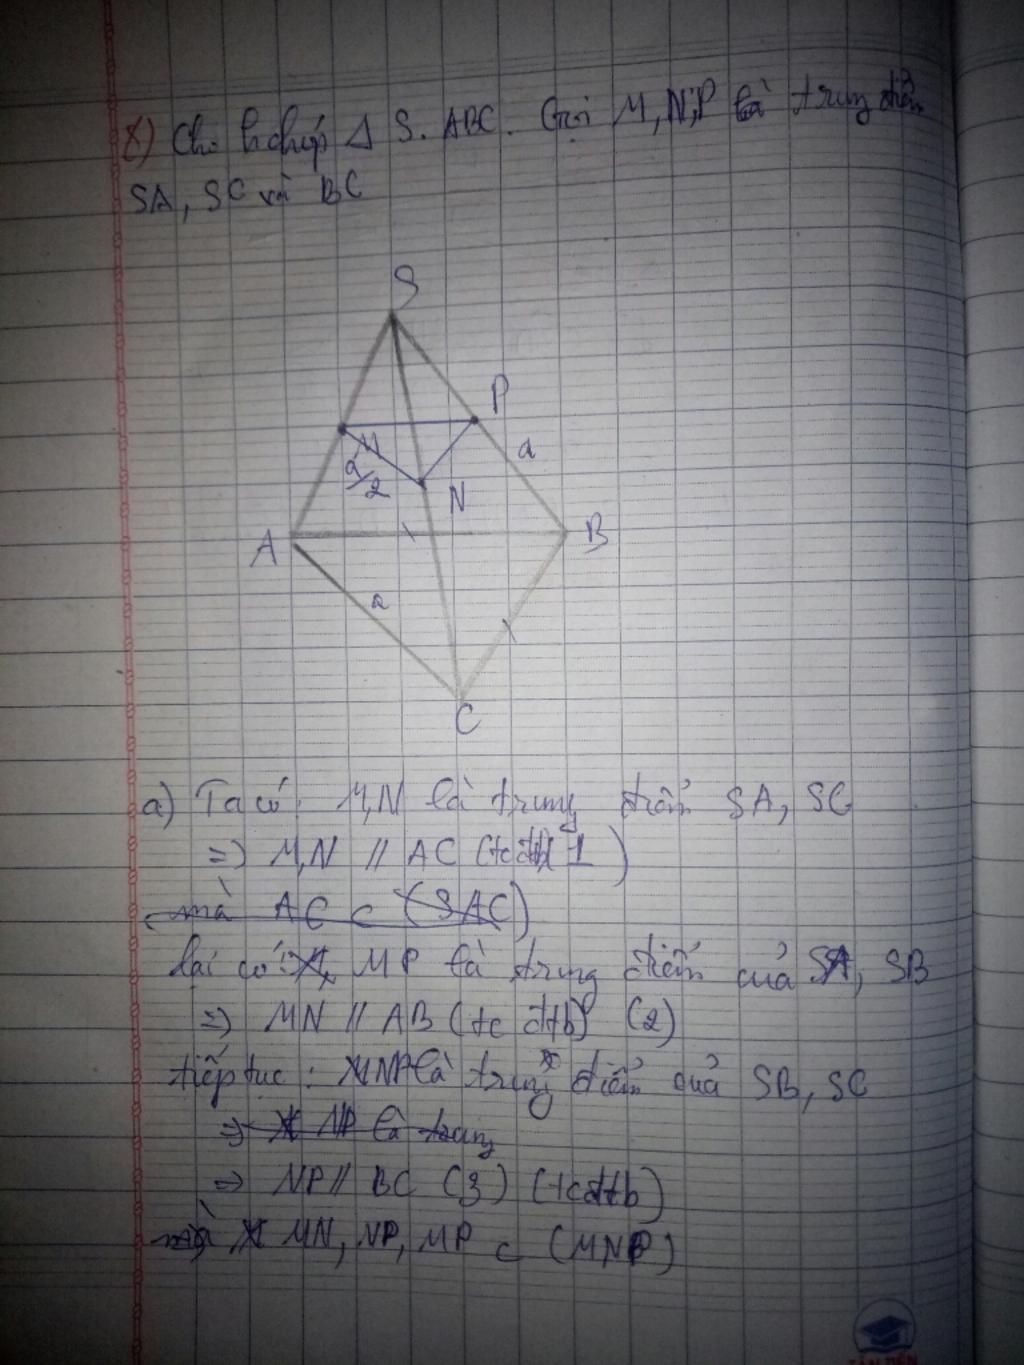 X) Cho h chóp Δ S. ABC. Gọi M, N, P là trung điểm
SA, SC và BC
S
P
M
a/2
a
N
A
B
a
C
a) Ta có: M,N là trung điểm SA, SC
=> M,N // AC (tcđtb 1)
mà AC ⊂ (SAC)
lại có: MP là trung điểm của SA, SB
=> MN // AB (tc đtb) (2)
tiếp tục: NP là trung điểm của SB, SC
=> NP là trung
=> NP // BC (3) (tcđtb)
MN, NP, MP ⊂ (MNP)